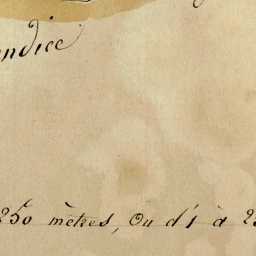 ndice
250 mètres, ou d'1 à 2